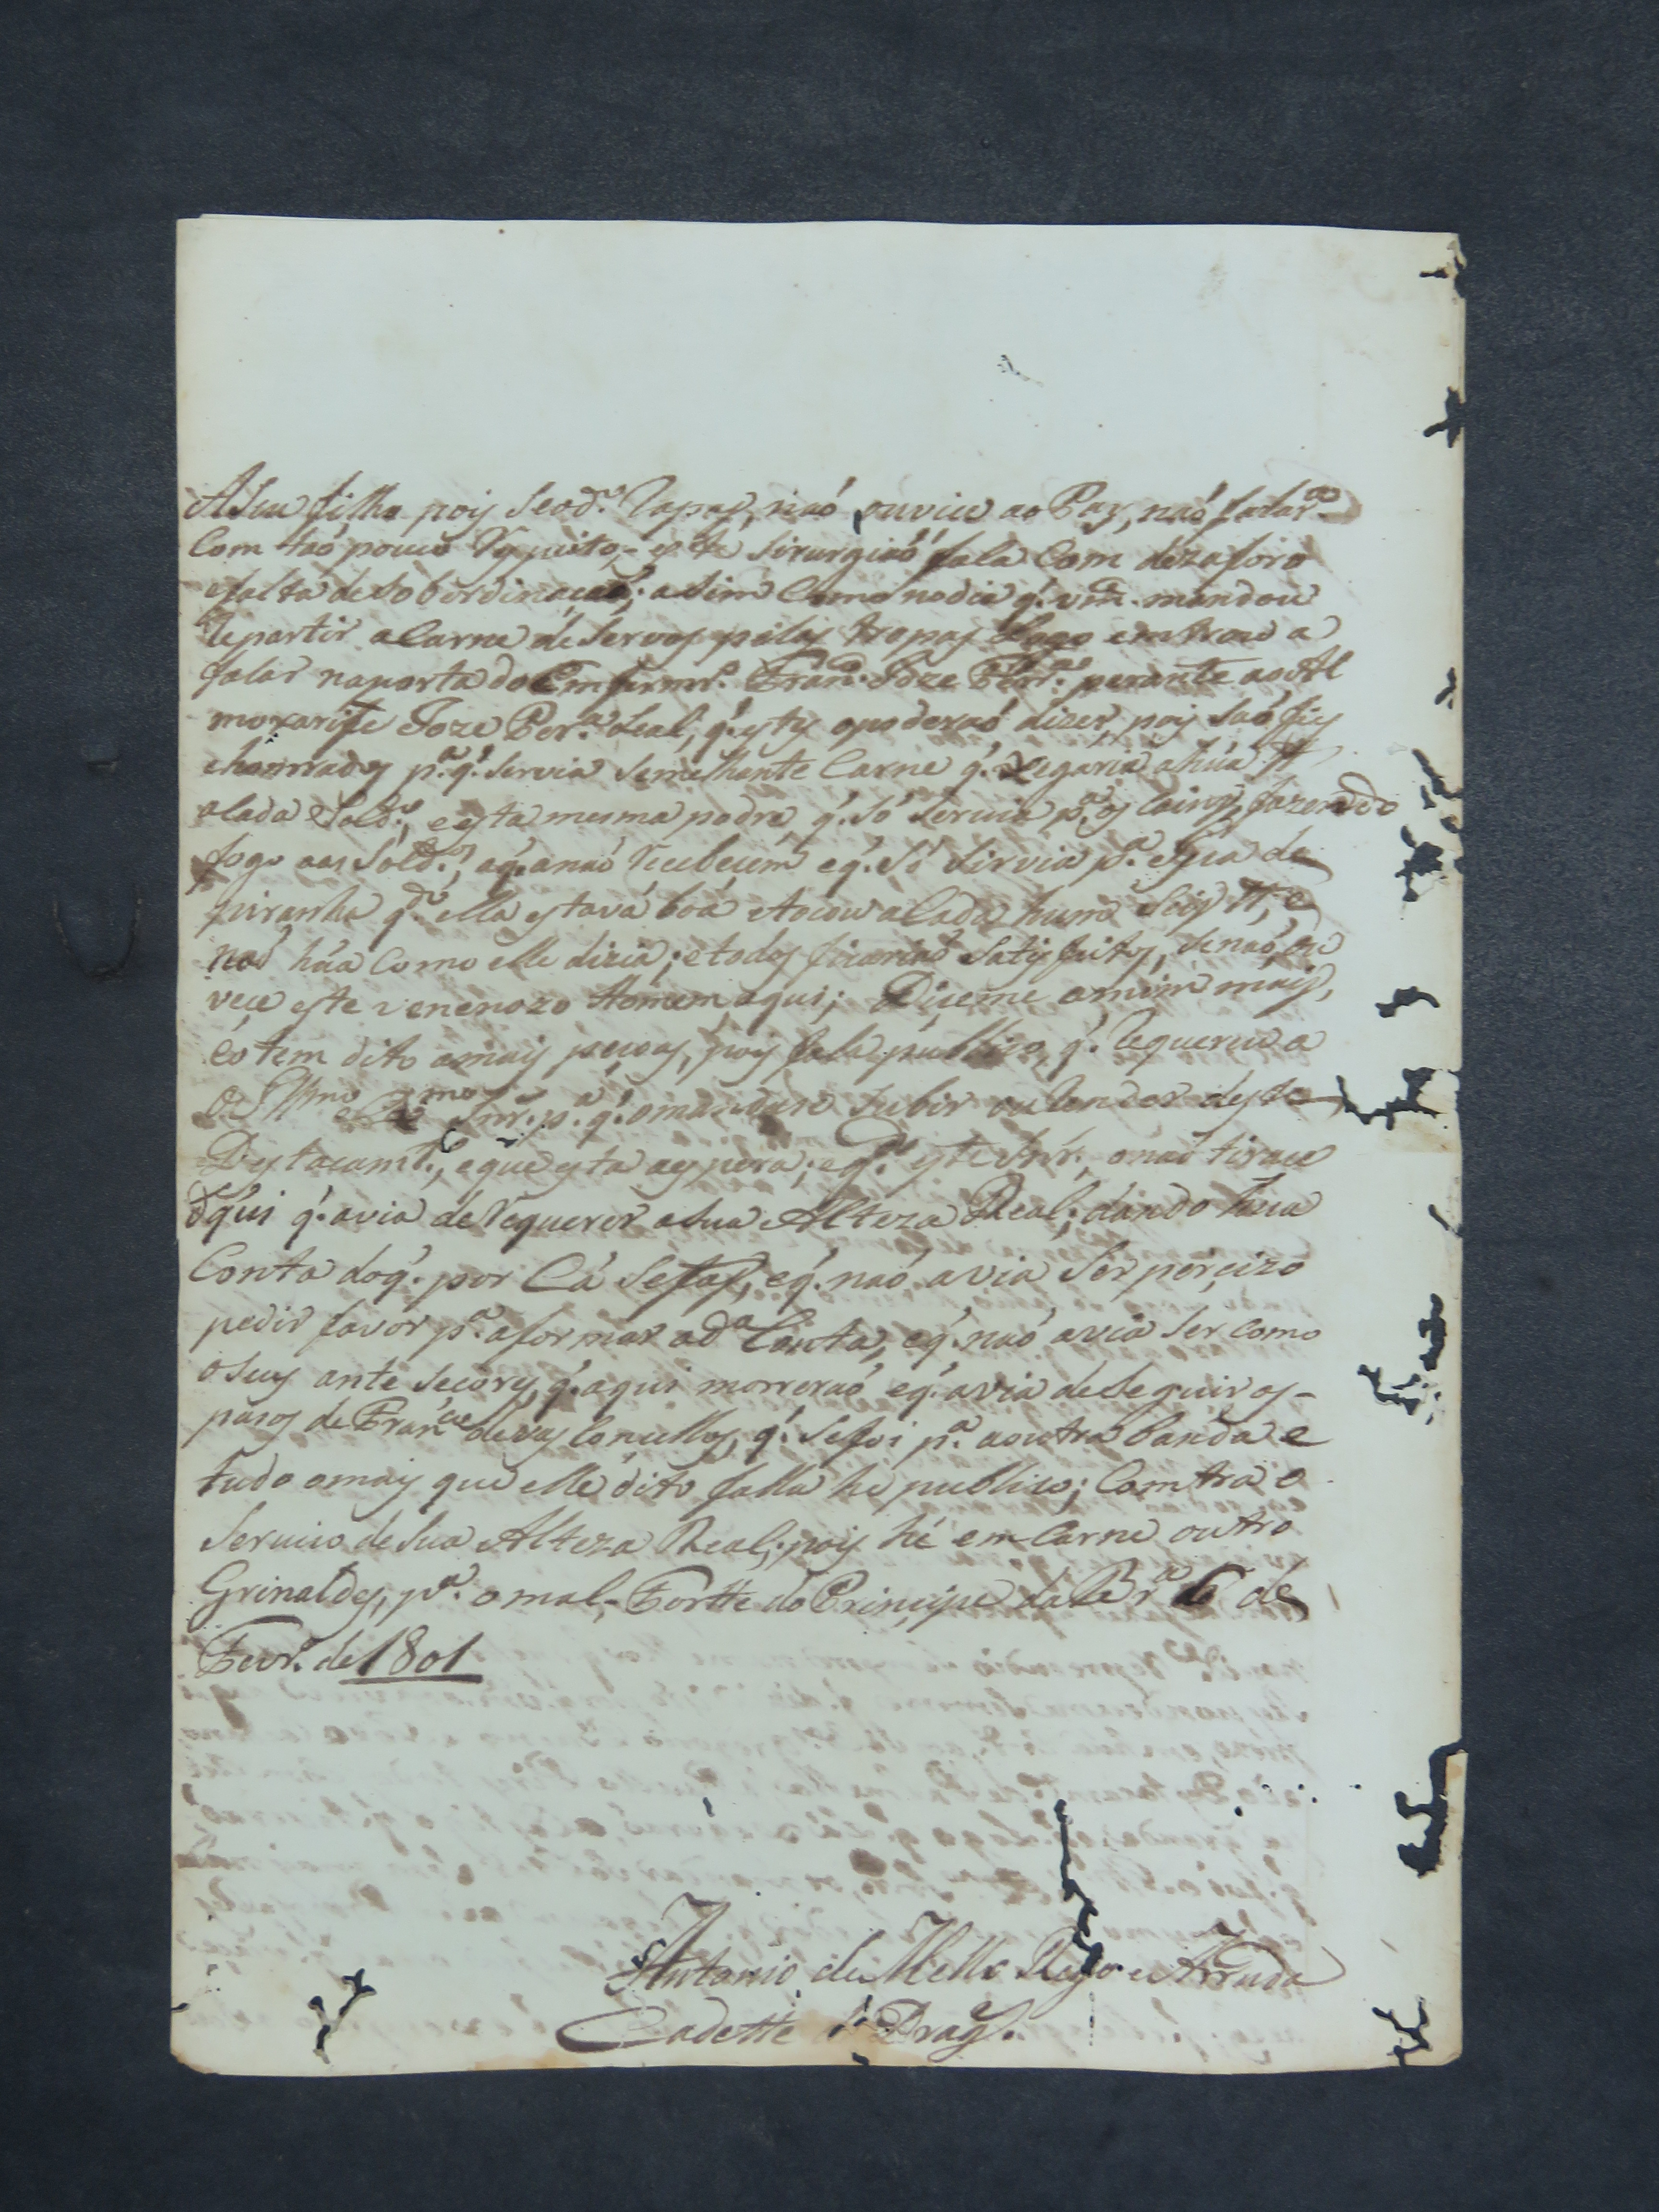 A Seu filho pois Se o d.º Rapas, naó ouvice ao Pay, naó falar.ª
Com taó pouco Respeito, este Sirurgiaó fala Com dezaforo
efalta de Sobordinaçaó; asim Como nodia q̃. vm̃. mandou
Repartir aCarne de Servos pelas tropas Logo emtrou a
falar naporta do Emfermr.º Fran.co Joze Ferr.ª perante aoAl
moxarife Joze Per.ª Leal, q̃. estes opoderaó dizer, pois Saó fieis
ehonrrados p.ª q̃. Servia Semelhante Carne q̃. xegaria ahúa tt
aCada Sold.º, eesta mesma podre q̃. Só Servia p.ª os Cains, fazendo
fogo aos Sold.os, aq̃. anaó Recebecem eq̃. Só Sirvia p.ª esca de
piranha q.do ella estava boa etocou aCada hum Seis tt, e
naó húa Como elle dizia; etodos ficariaó Satisfeitos, Senaó ou
vece este venenozo Homem aqui; Diceme amim mais,
eo tem dito amais pecoas, pois fala publico, q̃. Requereu a
o Illmo e Exmo Snr. p.ª q̃. omandase Subir ou render deste
Destacamt.º, eque esta aespera; eq.do este Snr., onaó tirace
dqui q̃. avia de Requerer aSua Alteza Real; dando húa
Conta doq̃. por Cá Sefas, eq̃. naó avia Ser perçizo
pedir favor p.ª aformar ad.ª Conta, eq̃. naó avia Ser como
oseus ante Secores, q̃. aqui morreraó eq̃. avia de Seguir os-
pasos de Fran.co deVasConcellos, q̃. Sefoi p.ª aoutra banda e
tudo omais que elle dito falla hé publico; Comtra o
Servico de Sua Alteza Real; pois hé em Carne outro
Grinaldes, p.ª o mal, Fortte do Principe da Br.ª 6 de
Fevr.º de 1801
Antonio de Mello Rego e Arruda
Cadette d' Drag.s